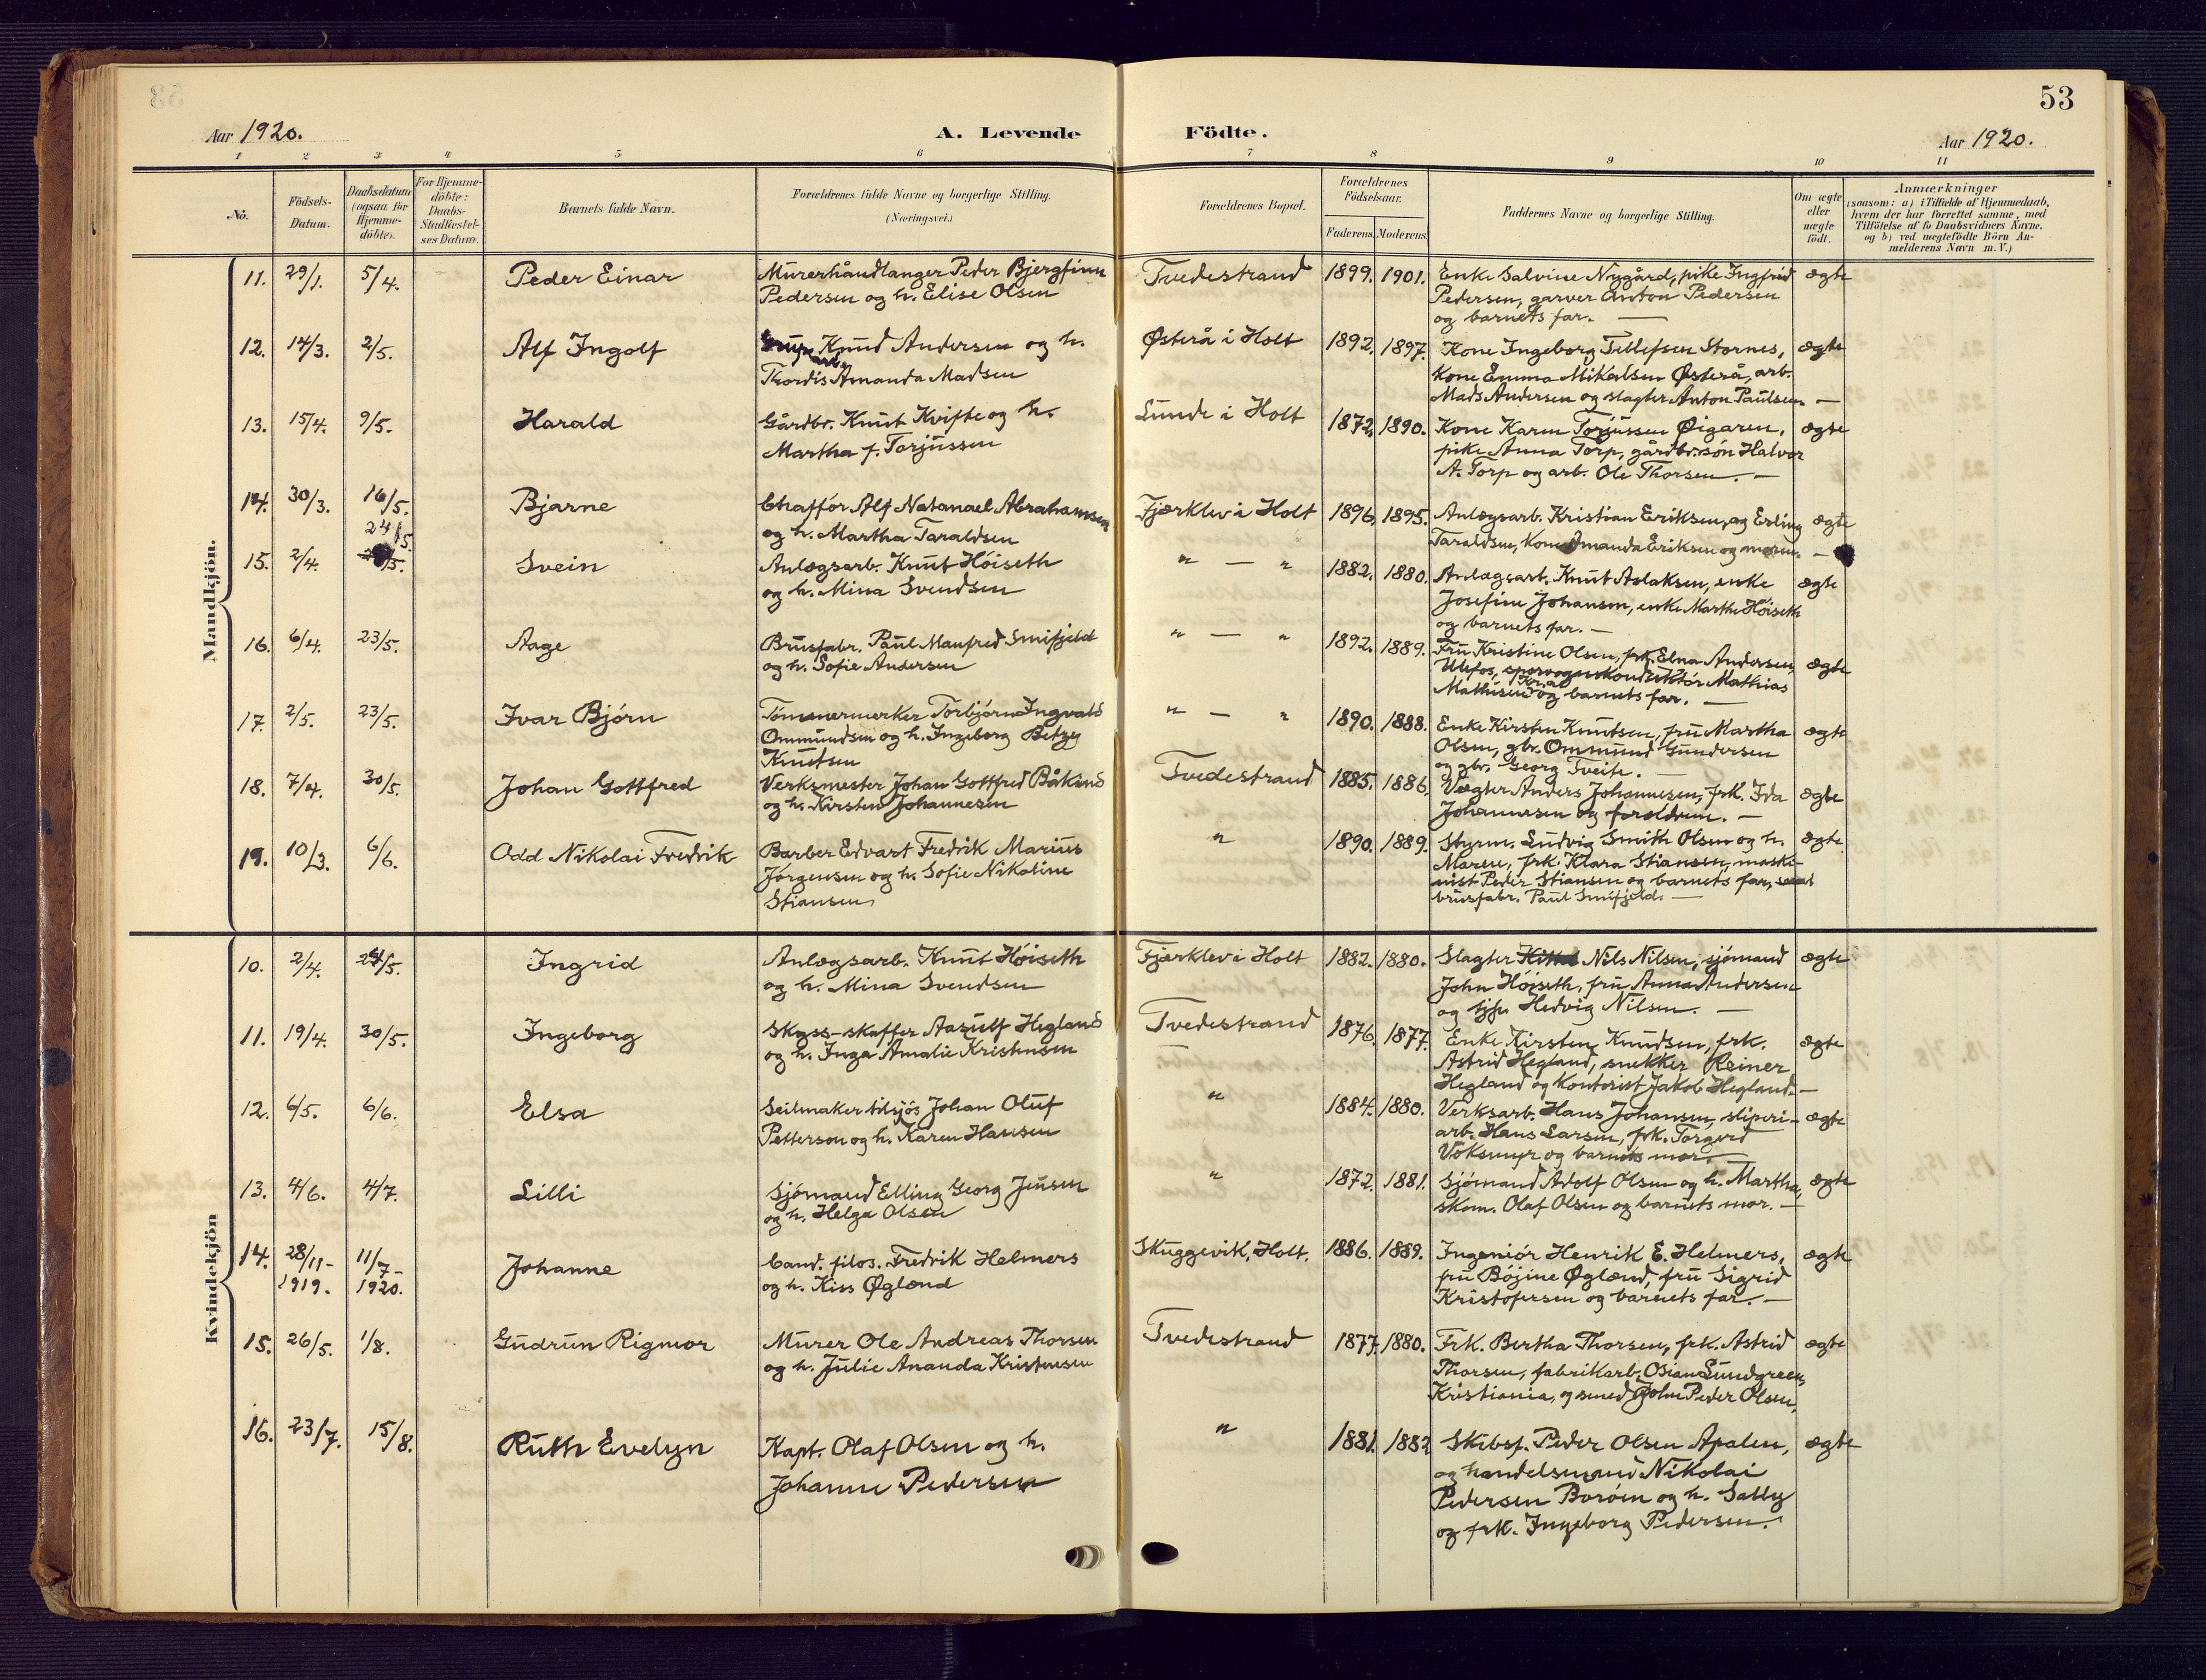 53
Aar 1920.
A. Levende Födte.
Aar 1920.
1 2 3 4 5 6 7 8 9 10 11
No.
Födsels-
Datum.
Daabsdatum
(ogsaa for
Hjemme-
döbte).
For Hjemme-
döbte:
Daabs-
Stadfæstel-
ses Datum.
Barnets fulde Navn.
Forældrenes fulde Navne og borgerlige Stilling.
(Næringsvei.)
Forældrenes Bopæl.
Forældrenes
Födselsaar.
Faderens. Moderens.
Faddernes Navne og borgerlige Stilling.
Om ægte
eller
uægte
födt.
Anmærkninger
(saasom: a) i Tilfælde af Hjemmedaab,
hvem der har forrettet samme, med
Tilföielse af to Daabsvidners Navne,
og b) ved uægtefödte Börn An-
melderens Navn m. V.)
Mandkjön.
11. 29/1. 5/4. Peder Einar
Murerhåndlanger Peder Bjergfinn
Pedersen og h. Elise Olsen
Tvedestrand 1899. 1901.
Enke Salvine Nygård, pike Ingfrid
Pedersen, garver Anton Pedersen
og barnets far. —
ægte
12. 14/3. 2/5. Alf Ingolf
Knud Andersen og h.
Thordis Amanda Madsen
Østerå i Holt 1892. 1897.
Kone Ingeborg Tellefsen Stornes,
Kone Emma Mikalsen Østerå, arb.
Mads Andersen og slagter Anton Paulsen —
ægte
13. 15/4. 9/5. Harald
Gårdbr. Knut Kvifte og h.
Martha f. Torjussen
Lunde i Holt 1872. 1890.
Kone Karen Torjussen Øigaren,
pike Anna Torp, gårdbr.sön Halvor
A. Torp og arb. Ole Thorsen. —
ægte
14. 30/3. 16/5. Bjarne
Chafför Alf Natanael Abrahamsen
og h. Martha Taraldsen
Fjærklev i Holt 1896. 1895.
Anlægsarb. Kristian Eriksen, og Erling
Taraldsen, kone Amanda Eriksen og moren. —
ægte
15. 2/4. 24/5. Svein
Anlægsarb. Knut Höiseth
og h. Mina Svendsen
" — " 1882. 1880.
Anlægsarb. Knut Aslaksen, enke
Josefine Johansen, enke Marthe Höiseth
og barnets far. —
ægte
16. 6/4. 23/5. Aage
Brusfabr. Paul Manfred Smifjeld
og h. Sofie Andersen
" — " 1892. 1889.
Fru Kristine Olsen, frk. Elna Andersen,
Ulefos, sporvognskonduktör Mathias
Mathisen Kr.a og barnets far. —
ægte
17. 2/5. 23/5. Ivar Björn
Tömmermerker Torbjörn Ingvald
Ommundsen og h. Ingeborg Betzy
Knutsen
" — " 1890. 1888.
Enke Kirsten Knutsen, fru Martha
Olsen, gbr. Ommund Gundersen
og gbr. Georg Tveite. —
ægte
18. 7/4. 30/5. Johan Gottfred
Verksmester Johan Gottfred Båkind
og h. Kirsten Johannesen
Tvedestrand 1885. 1886.
Vægter Anders Johannesen, frk. Ida
Johannesen og forældrene. —
ægte
19. 10/3. 6/6. Odd Nikolai Fredrik
Barber Edvart Fredrik Marius
Jörgensen og h. Sofie Nikoline
Stiansen
" 1890. 1889.
Styrm. Ludvig Smith Olsen og h.
Maren, frk. Klara Stiansen, maski-
nist Peder Stiansen og barnets far,
brusfabr. Paul Smifjeld. —
ægte
Kvindekjön
10. 2/4. 24/5. Ingrid
Anlægsarb. Knut Höiseth
og h. Mina Svendsen
Fjærklev i Holt 1882. 1880.
Slagter Nils Nilsen, sjömand
John Höiseth, fru Anna Andersen
og tjp. Hedvig Nilsen. —
ægte
11. 19/4. 30/5. Ingeborg
Skyss-skaffer Aasulf Hegland
og h. Inga Amalie Kristensen
Tvedestrand 1876. 1877.
Enke Kirsten Knudsen, frk.
Astrid Hegland, snekker Reiner
Hegland og Kontorist Jakob Hegland. —
ægte
12. 6/5. 6/6. Elsa
Seilmaker tilsjös Johan Oluf
Petterson og h. Karen Hansen
" 1884. 1880.
Verksarb. Hans Johansen, sliperi-
arb. Hans Larsen, frk. Torgerd
Voksmyr og barnets mor. —
ægte
13. 4/6. 4/7. Lilli
Sjömand Elling Georg Jensen
og h. Helga Olsen
" 1872. 1881.
Sjömand Adolf Olsen og h. Martha,
skom. Olaf Olsen og barnets mor. —
ægte
14. 28/11- 1919. 11/7- 1920. Johanne
Cand. filos. Fredrik Helmers
og h. Kiss Øglænd
Skuggevik, Holt. 1886. 1889.
Ingeniör Henrik E. Helmers,
fru Böjine Øglænd, fru Sigrid
Kristofersen og barnets far. —
ægte
15. 26/5. 1/8. Gudrun Rigmor
Murer Ole Andreas Thorsen
og h. Julie Ananda Kristensen
Tvedestrand 1877. 1880.
Frk. Bertha Thorsen, frk. Astrid
Thorsen, fabrikarb. Osian Lundgreen,
Kristiania, og smed John Peder Olsen.
ægte
16. 23/7. 15/8. Ruth Evelyn
Kapt. Olaf Olsen og h.
Johanne Pedersen
" 1881. 1882
Skibsf. Peder Olsen Apalen,
og handelsmand Nikolai
Pedersen Boröen og h. Sally
og frk. Ingeborg Pedersen.
ægte